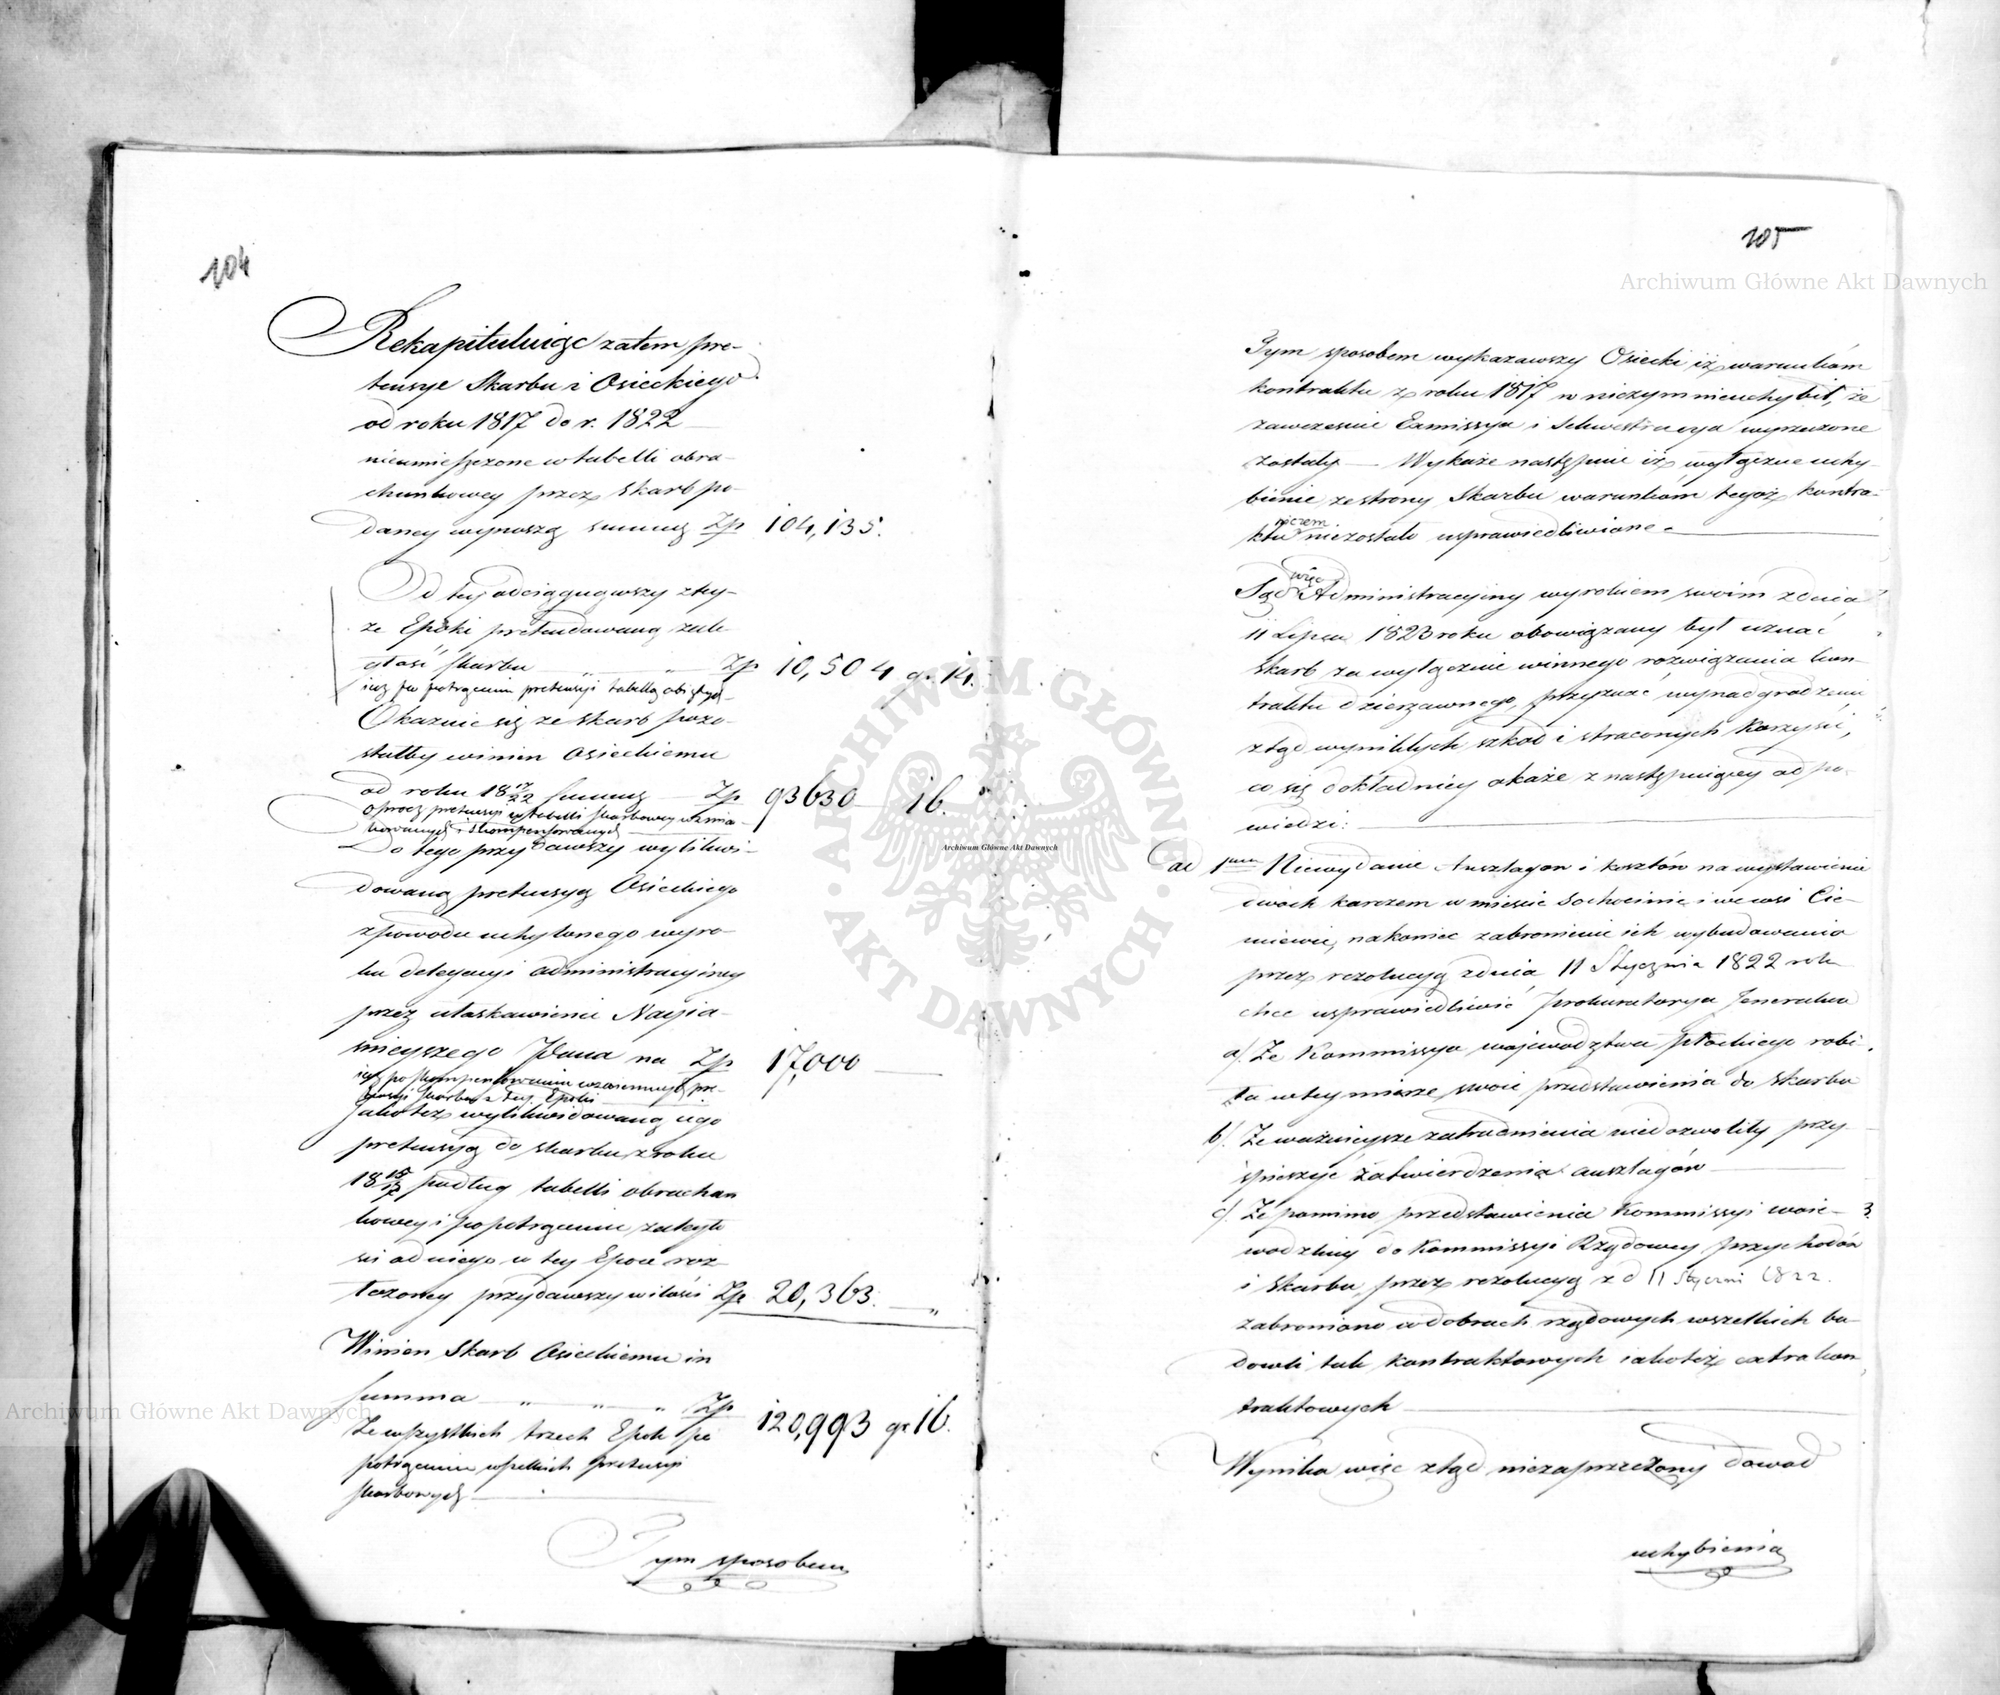 104
Rekapituluiąc zatem pre-
tensye Skarbu i Osieckiego
od roku 1817 do r. 1822
nieumieszczone w tabelli obra-
chunkowey przez Skarb po-
daney wynoszą summę Zp 104,135.
Od tey odciągnąwszy z tey-
że Epoki pretendowaną zale
głość Skarbu " " Zp 10,504 gr 14.
iuż po potrąceniu pretensyi tabellą obiętych
Okazuie się że Skarb pozo-
stałby winien Osieckiemu
od roku 18 17/22 Summę Zp 93630 16.
oprócz pretensyi w tabelli Skarbowey wzmia-
kowanych i skompensowanych
Do tego przydawszy wylikwi-
dowaną pretensyą Osieckiego
z powodu uchylonego wyro-
ku delegacyi administracyiney
przez ułaskawienie Nayia-
śnieyszego Pana na Zp 17,000
iuż po skompensowaniu wzaiemnych pre-
tensyi Skarbu z tey Epoki
Jakoteż wylikwidowaną iego
pretensyą do Skarbu z roku
18 15/17 podług tabelli obrachun
kowey i po potrąceniu zaległo
ści od niego w tey Epoce roz-
łożoney przydawszy w ilości Zp 20,363. "
Winien Skarb Osieckiemu in
Summa " " " Zp 120,993 gr 16.
Ze wszystkich trzech Epok po
potrąceniu wszelkich pretensyi
Skarbowych
Tym sposobem
105
Archiwum Główne Akt Dawnych
Tym sposobem wykazawszy Osiecki iż warunkom
kontraktu z roku 1817 w niczym nieuchybił, że
zawcześnie Exmissya i Sekwestracya wyrzeczone
zostały — Wykaże następnie iż wyłączne uchy-
bienie ze strony Skarbu warunkom tegoż kontra-
niczem
ktu niezostało usprawiedliwione.
więc
Sąd Administracyiny wyrokiem swoim z dnia
11 Lipca 1823 roku obowiązany był uznać
Skarb za wyłącznie winnego rozwiązania kon
traktu dzierżawnego, przyznać wynadgrodzenie
ztąd wynikłych szkod i straconych Korzyści,
co się dokładniey okaże z następuiącey odpo-
wiedzi:
ad 1mum Niewydanie Anszlagow i kosztów na wystawienie
dwoch karczem w mieście Sochocinie i we wsi Cie-
mniewie, nakoniec zabronienie ich wybudowania
przez rezolucyą z dnia 11 Stycznia 1822 roku
chce usprawiedliwić Prokuratorya Jeneralna
a/. Że Kommissya woiewodztwa Płockiego robi-
ła w tey mierze swoie przedstawienia do Skarbu
b/. Że ważnieysze zatrudnienia niedozwoliły przy-
śpieszyć zatwierdzenia anszlagów
c/. Że pomimo przedstawienia Kommissyi woie-
wodzkiey do Kommissyi Rządowey Przychodów
i Skarbu, przez rezolucyą z d 11 Styczni 1822.
zabroniono w dobrach rządowych wszelkich bu-
dowli tak kontraktowych iakoteż extrakon
traktowych
Wynika więc ztąd niezaprzeczony dowod
uchybienia
Archiwum Główne Akt Dawnych
ARCHIWUM GŁÓWNE · AKT DAWNYCH ·
Archiwum Główne Akt Dawnych